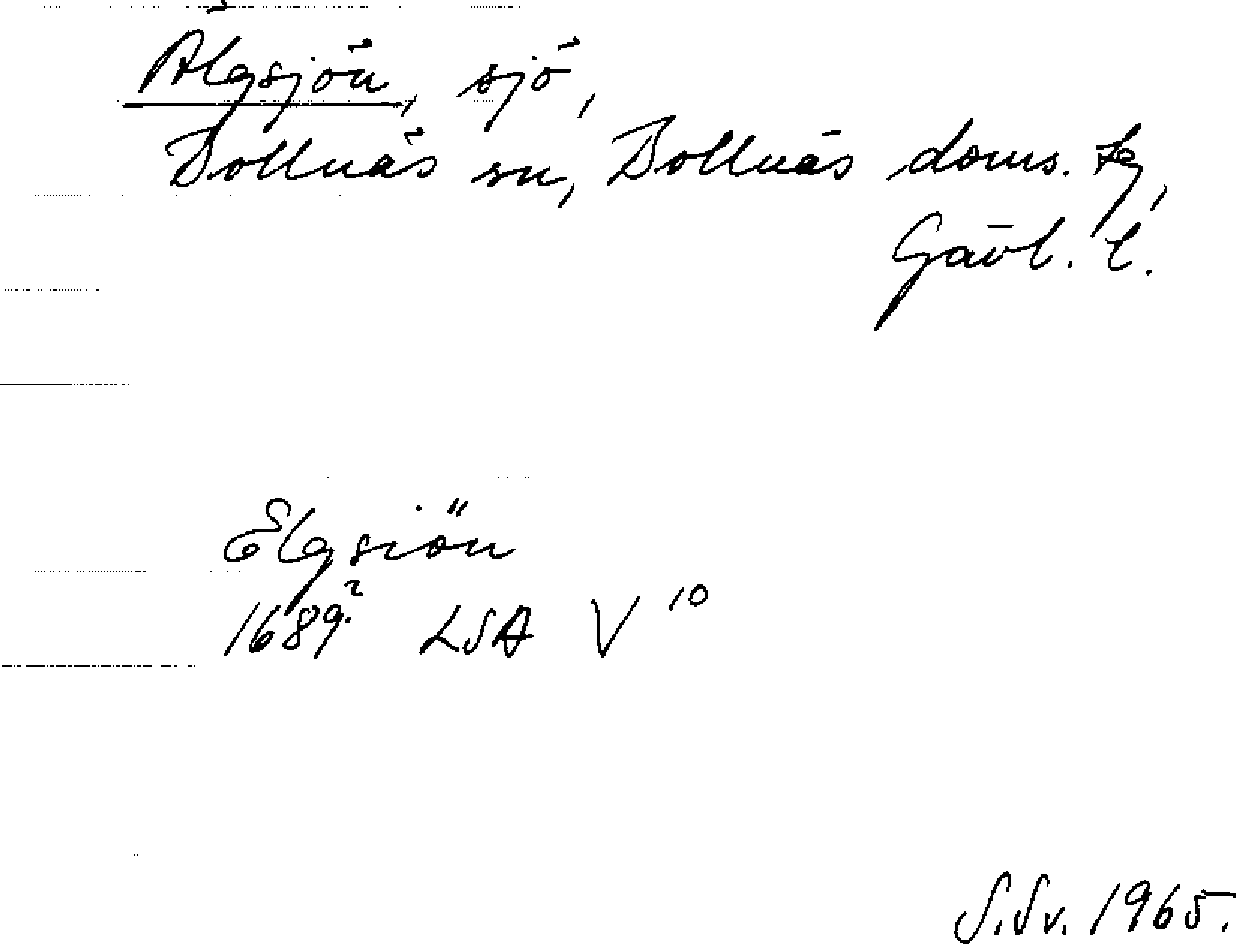 Älgsjön, sjö,
Bollnäs sn, Bollnäs doms. tg,
Gävl. l.
Elgsiön
1689? LSA V 10
S.Sv. 1965.